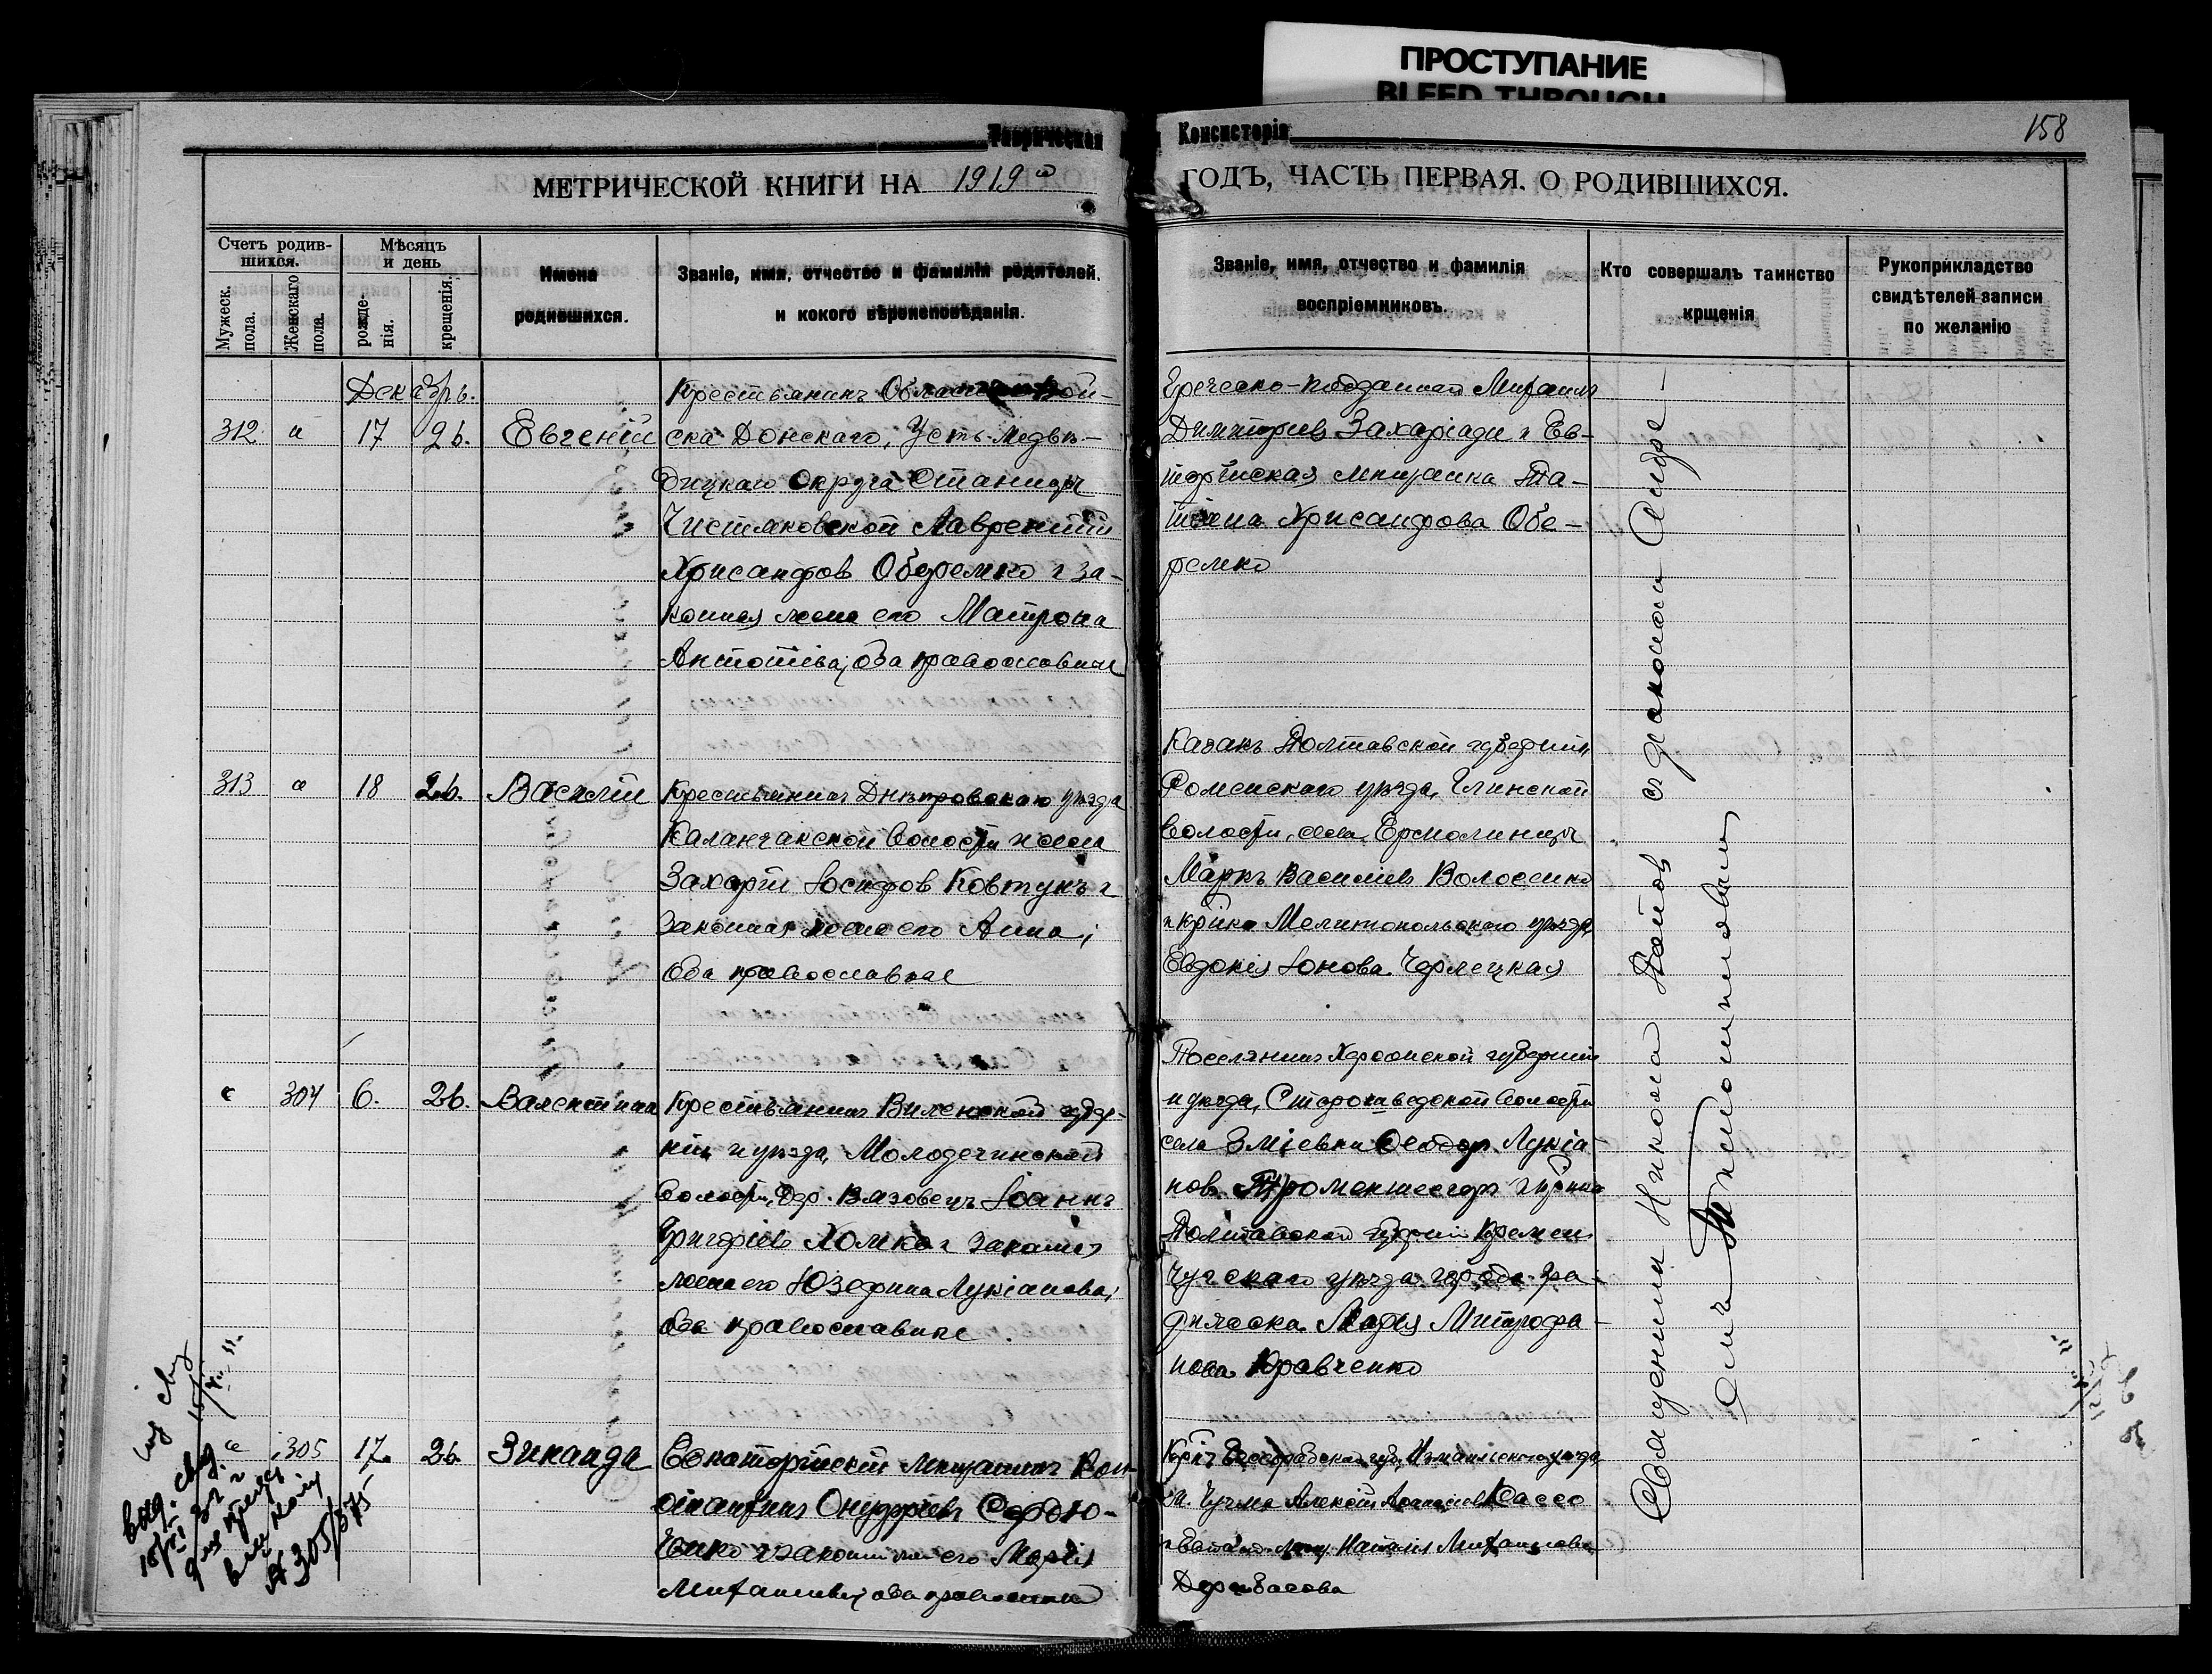 ПРОСТУПАНИЕ
BLEED THROUGH
Таврическая
Консисторія
158
МЕТРИЧЕСКОЙ КНИГИ НА 1919й
ГОДЪ, ЧАСТЬ ПЕРВАЯ. О РОДИВШИХСЯ.
Счетъ родив-
шихся.
Мужеск.
пола.
Женскаго
пола.
Мѣсяцъ
и день
рожде-
нія.
крещенія.
Имена
родившихся.
Званіе, имя, отчество и фамилія родителей.
и кокого вѣроисповѣданія.
Званіе, имя, отчество и фамилія
воспріемниковъ.
Кто совершалъ таинство
крщенія
Рукоприкладство
свидѣтелей записи
по желанію
Декабрь.
312 и 17 26. Евгеній
Крестьянинъ Области Вой-
ска Донскаго, Усть-Медвѣ-
дицкаго Округа Станицы
Чистяковской Лаврентій
Хрисанфовъ Оберемко и за-
конная жена его Матрона
Антоніева; оба православные
Греческо-подданный Михаилъ
Димитріевъ Захаріади и Ев-
торійская мѣщанка Та-
тіана Хрисанфова Обе-
ремко
313 и 18 26. Василій
Крестьянинъ Днѣпровскаго уѣзда
Каланчакской волости и села
Захарій Іосифовъ Ковтунъ и
законная жена его Анна;
оба православные
Казакъ Полтавской губерніи,
Роменскаго уѣзда, Глинской
волости, села Ермолинцы
Маркъ Василіевъ Волосенко
и кр-ка Мелитопольскаго уѣзда,
Евдокія Іонова Черлецкая
и 304 6. 26. Валентина
Крестьянинъ Виленской губер-
ніи и уѣзда, Молодечинской
волости, дер. Вязовецъ Іоаннъ
Григоріевъ Хомко и законная
жена его Юзефина Лукіанова;
оба православные
Поселянинъ Херсонской губерніи
и уѣзда, Старошведской волости
села Зміевки Ѳеодоръ Лукіа-
новъ
Полтавской губерніи Кремен-
чугскаго уѣзда города Гра-
дижска Марія Митрофа-
нова Кравченко
и 305 17. 26. Зинаида
Евпаторійскій мѣщанинъ Кон-
стантинъ Онуфріевъ Сердю-
ченко и законная жена его Марія
Михаилова; оба православные
Кр-нъ Бессарабской губ., Измаильскаго уѣзда
Алексій Кассо
Наталія Михаилова
Дерибасова
Священникъ Николай Поповъ съ діакономъ Андре-
емъ
305/375